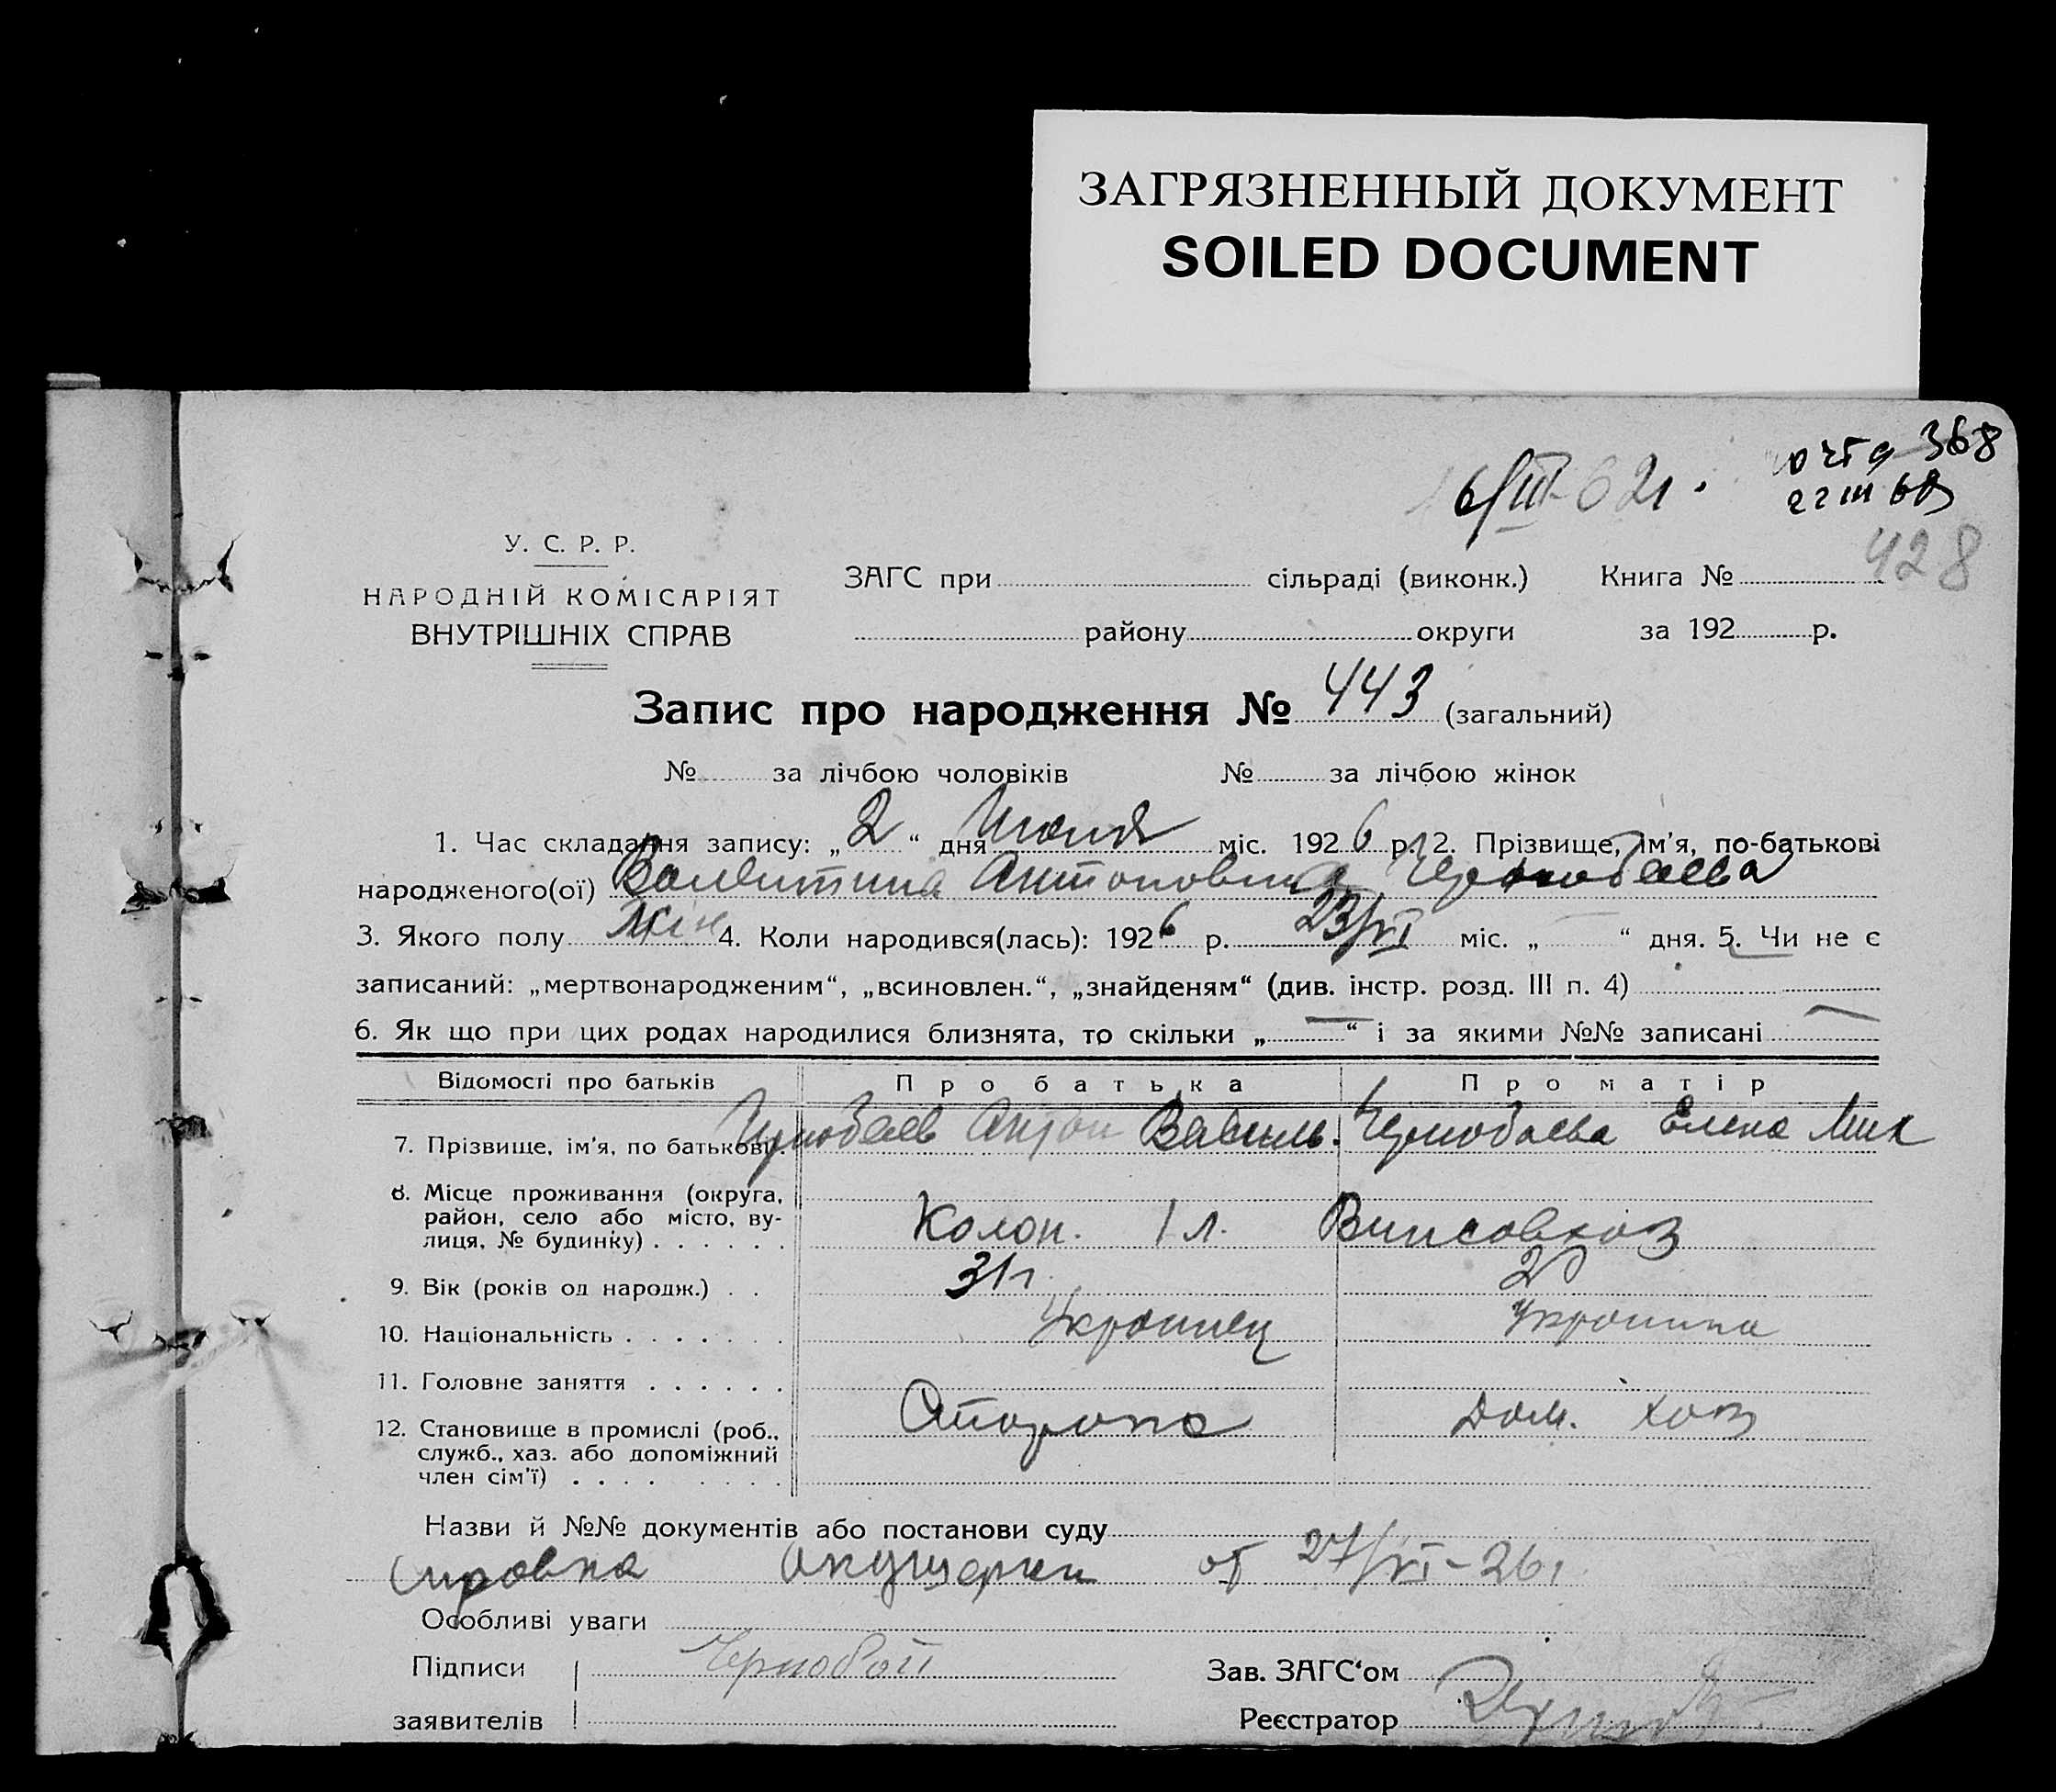 ЗАГРЯЗНЕННЫЙ ДОКУМЕНТ
SOILED DOCUMENT
368
6/III-62г.
428
У. С. Р. Р.
НАРОДНІЙ КОМІСАРІЯТ
ВНУТРІШНІХ СПРАВ
ЗАГС при сільраді (виконк.) Книга №
району округи за 192 р.
Запис про народження № 443 (загальний)
№ за лічбою чоловіків № за лічбою жінок
1. Час складання запису: „2“ дня Июля міс. 1926 р. 2. Прізвище, ім'я, по-батькові
народженого(ої) Валентина Антоновна Чернобаева
3. Якого полу жін 4. Коли народився(лась): 1926 р. 23/VI міс. „ “ дня. 5. Чи не є
записаний: „мертвонародженим“, „всиновлен.“, „знайденям“ (див. інстр. розд. III п. 4)
6. Як що при цих родах народилися близнята, то скільки „—“ і за якими №№ записані —
Відомості про батьків Про батька Про матір
7. Прізвище, ім'я, по батькові. Чернобаев Антон Василь. Чернобаева Елена Мих
8. Місце проживання (округа,
район, село або місто, ву-
лиця, № будинку) . . . . . . Колон. 1 л. Винсовхоз
9. Вік (років од народж.) . . 31г.
10. Національність . . . . . . Украинец Украинка
11. Головне заняття . . . . . .
12. Становище в промислі (роб.,
служб., хаз. або допоміжний
член сім'ї) . . . . Сторож Дом. хоз
Назви й №№ документів або постанови суду
Справка Акушерки от 27/VI-26г.
Особливі уваги
Підписи Чернобай Зав. ЗАГС'ом
заявителів Реєстратор